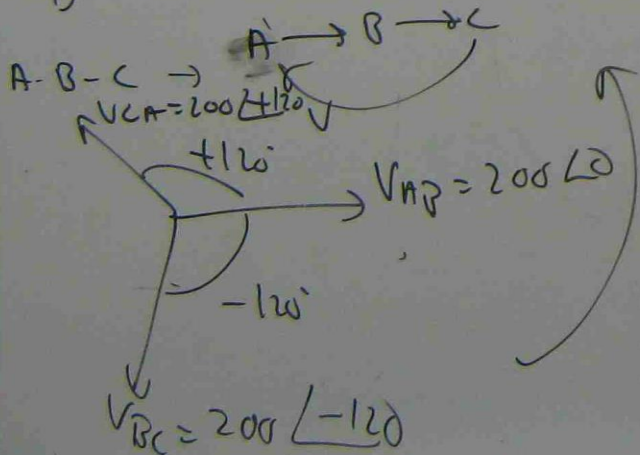 A → B → C
A-B-C →
VCA = 200∠+120 V
+120°
VAB = 200∠0
-120°
VBC = 200∠-120